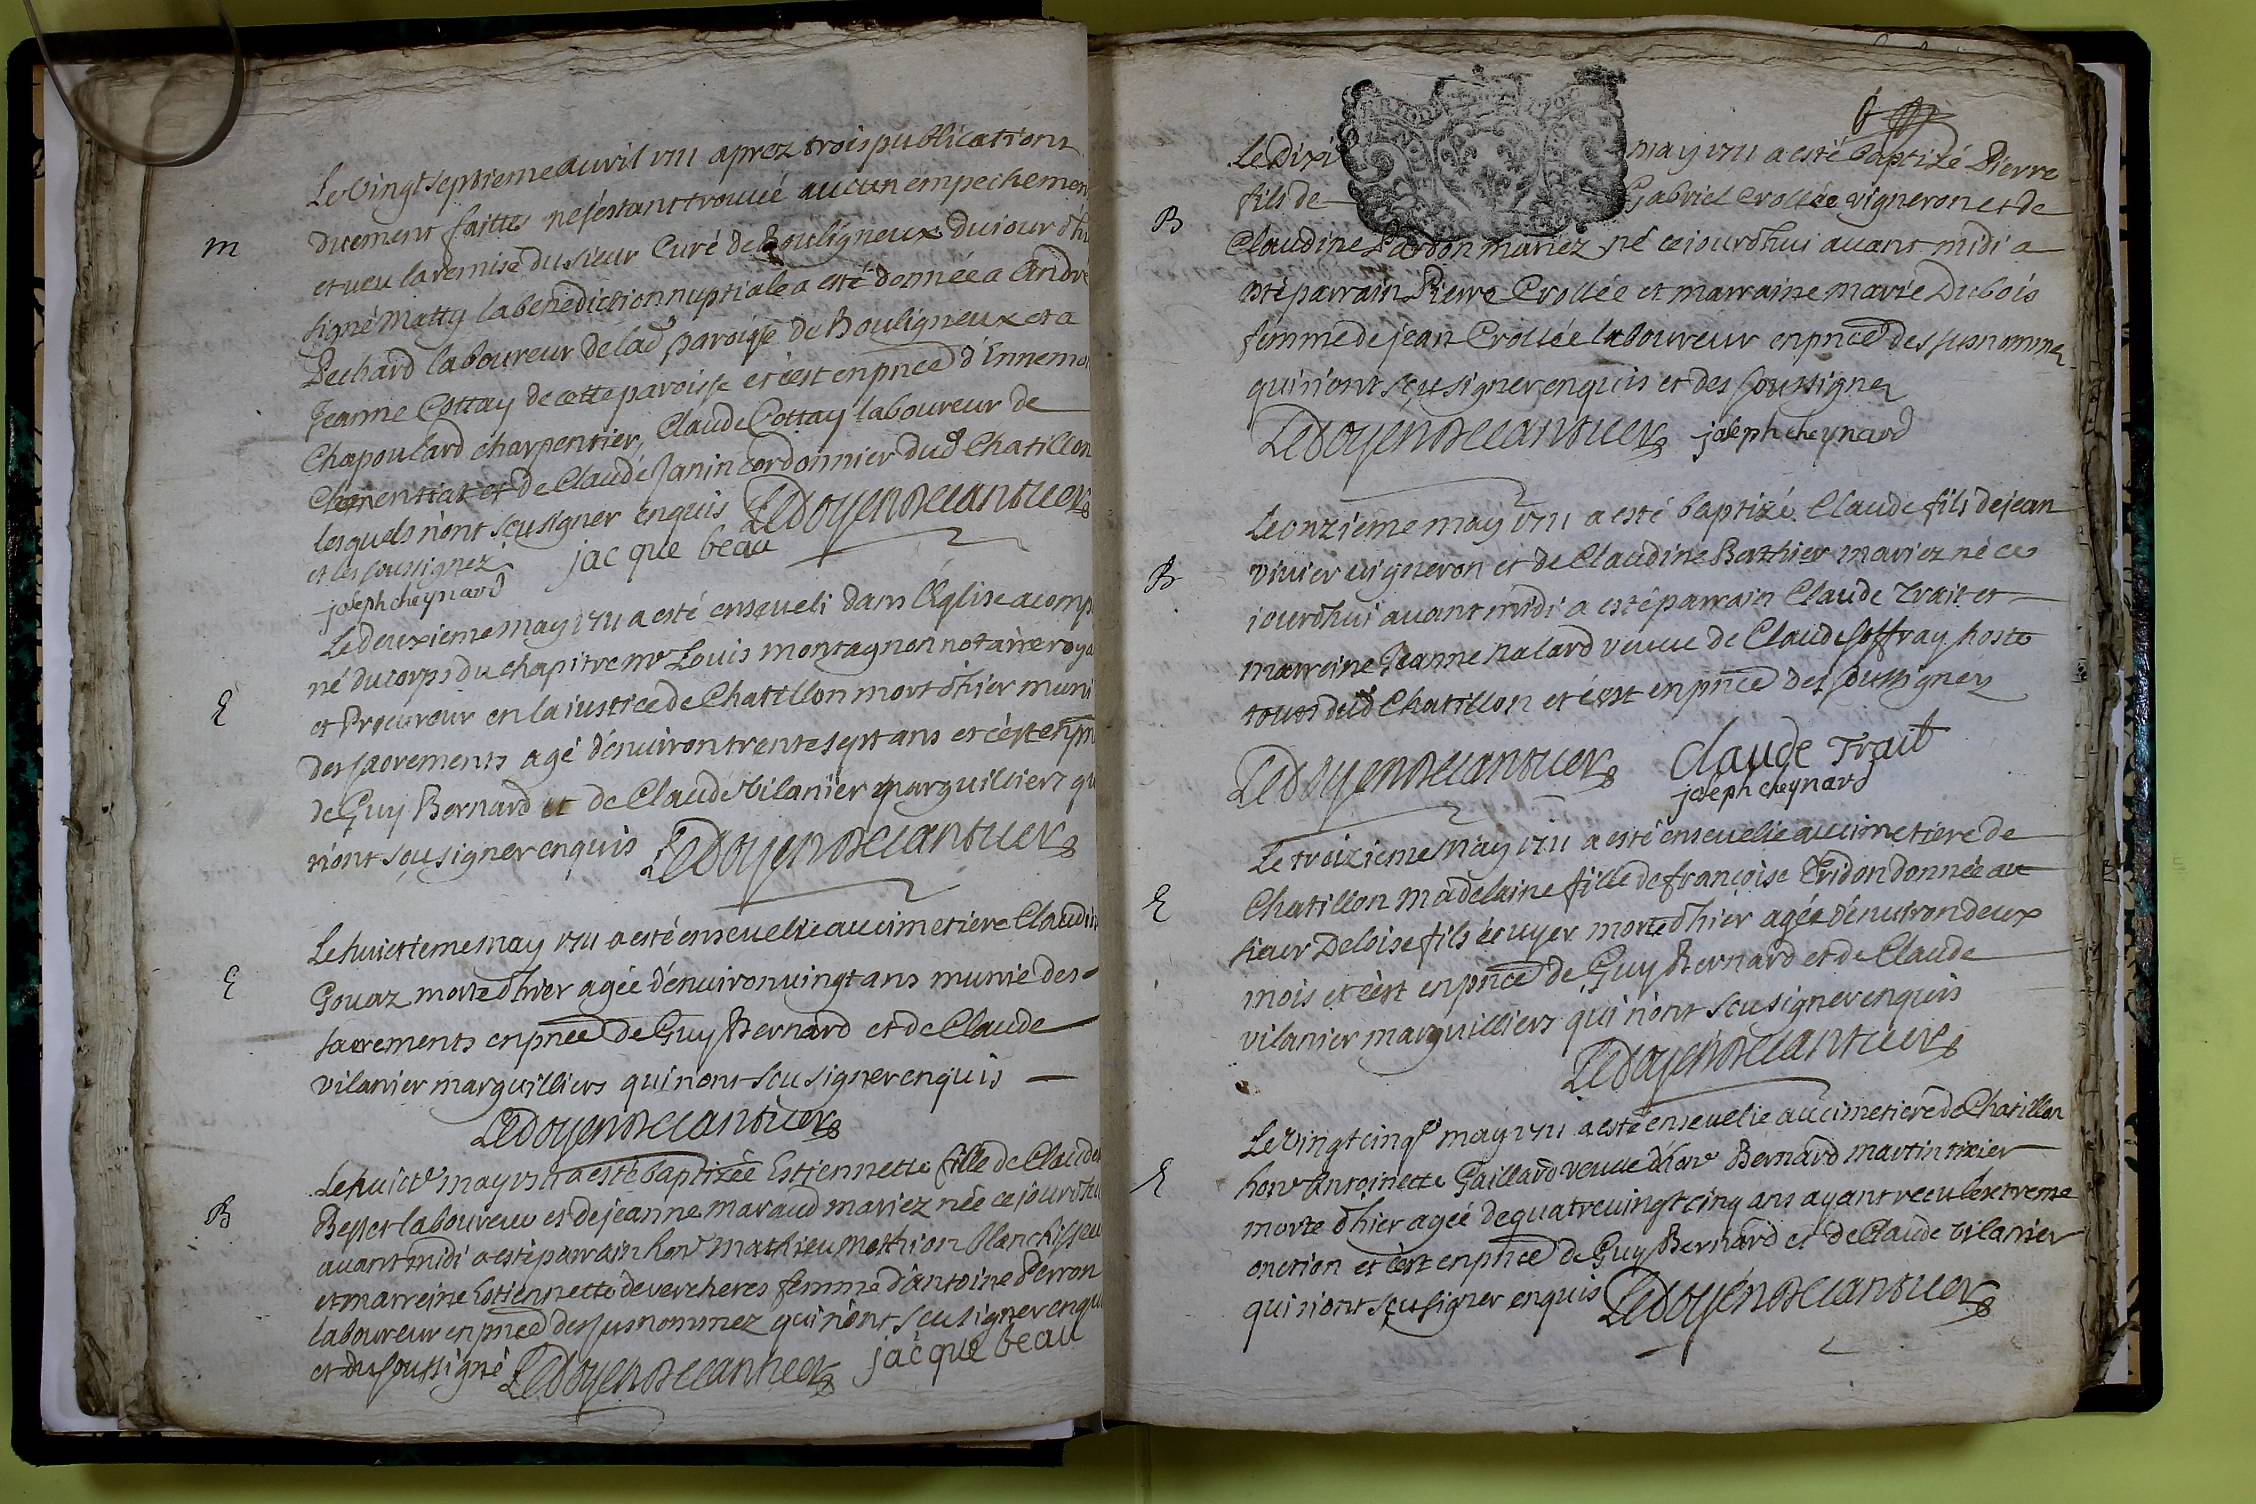 Le vingt septieme avvril 1711 aprez trois publications
m
duement faittes ne s'estant trouvé aucun empechemen
et veu la remise du sieur Curé de Bouligneux du jourd'hu
signé Matty la benediction nuptiale a esté donnée a André
Pechard laboureur de lad paroisse de Bouligneux et a
Jeanne Cottay de cette paroisse et c'est en pnce d'Ennemo
Chapoulard charpentier, Claude Cottay laboureur de
et de Claude Janin cordonnier dud Chatillon
lesquels n'ont sçu signer enquis
et les soussignez jacque beau
joseph cheynard
Le deuxieme May 1711 a esté enseveli dans l'Eglise acompa
né du corps du chapitre mr Louis montagnon notaire roya
E
et Procureur en la justice de Chatillon mort d'hier muni
des sacrements agé d'environ trente sept ans et c'est en pn
de Guy Bernard et de Claude Vilanier marguilliers qu
n'ont sçu signer enquis
Le huictieme May 1711 a esté ensevelie au cimetiere Claudin
E
Gouaz morte d'hier agée d'environ vingt ans munie des
sacrements en pnce de Guy Bernard et de Claude
vilanier marguilliers qui n'ont sçu signer enquis
Le huicte may 1711 a esté baptizée Estiennette fille de Claude
B
Besset laboureur et de jeanne maraud mariez née ce jourd'hu
avant midi a esté parrain hone Mathieu Mathion blanchisseu
et marreine Estiennette devercheres femme d'antoine Perron
laboureur en pnce des susnommez qui n'ont sçu signer enqu
et du soussigné jacque beau
6
Le Dixi may 1711 a esté baptizé Pierre
B
fils de Gabriel Crollée vigneron et de
Claudine Lardon mariez né ce jourd'hui avant midi a
esté parrain Pierre Crollée et marraine marie Dubois
femme de jean Crollée laboureur en pnce des susnommez
qui n'ont sçu signer enquis et des soussignez
joseph cheynard
Le onzieme may 1711 a esté baptizé Claude fils de jean
B
vivier vigneron et de Claudine Berthier mariez né ce
jourd'hui avant midi a esté parrain Claude Trait et
marreine Jeanne nalard veuve de Claude Joffray hoste
tous dud Chatillon et c'est en pnce des soussignez
Claude Trait
joseph cheynard
Le troizieme May 1711 a esté ensevelie au cimetiere de
E
Chatillon Madelaine fille de françoise Tridon donnée au
sieur Deloise fils écuyer morte d'hier agée d'environ deux
mois et c'est en pnce de Guy Bernard et de Claude
vilanier marguilliers qui n'ont sçu signer enquis
Le vingt cinqe may 1711 a esté ensevelie au cimetiere de Chatillon
E
hone Antoinette Gaillard veuve d'hone Bernard martin tixier
morte d'hier agée de quatre vingt cinq ans ayant receu l'extreme
onction et c'est en pnce de Guy Bernard et de Claude vilanier
qui n'ont sçu signer enquis